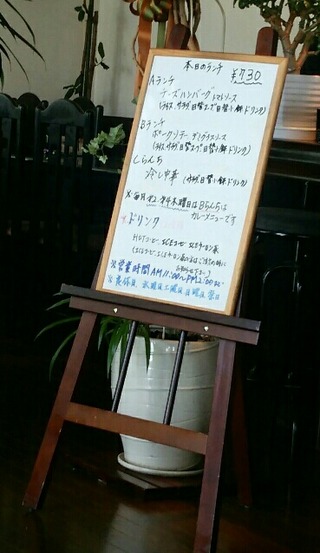 本日のランチ
¥730
Aランチ
チーズハンバーグトマトソース
(ライス サラダ 日替スープ 日替小鉢 ドリンク)
Bランチ
ポークソテーデミグラスソース
(ライス サラダ 日替スープ 日替小鉢 ドリンク)
Cらんち
冷し中華 (サラダ 日替小鉢 ドリンク)
※毎月 第2、第4木曜日はBらんちは
カレーメニューです
ドリンク
HOTコーヒー
※営業時間AM11:00〜PM2:00
※定休日